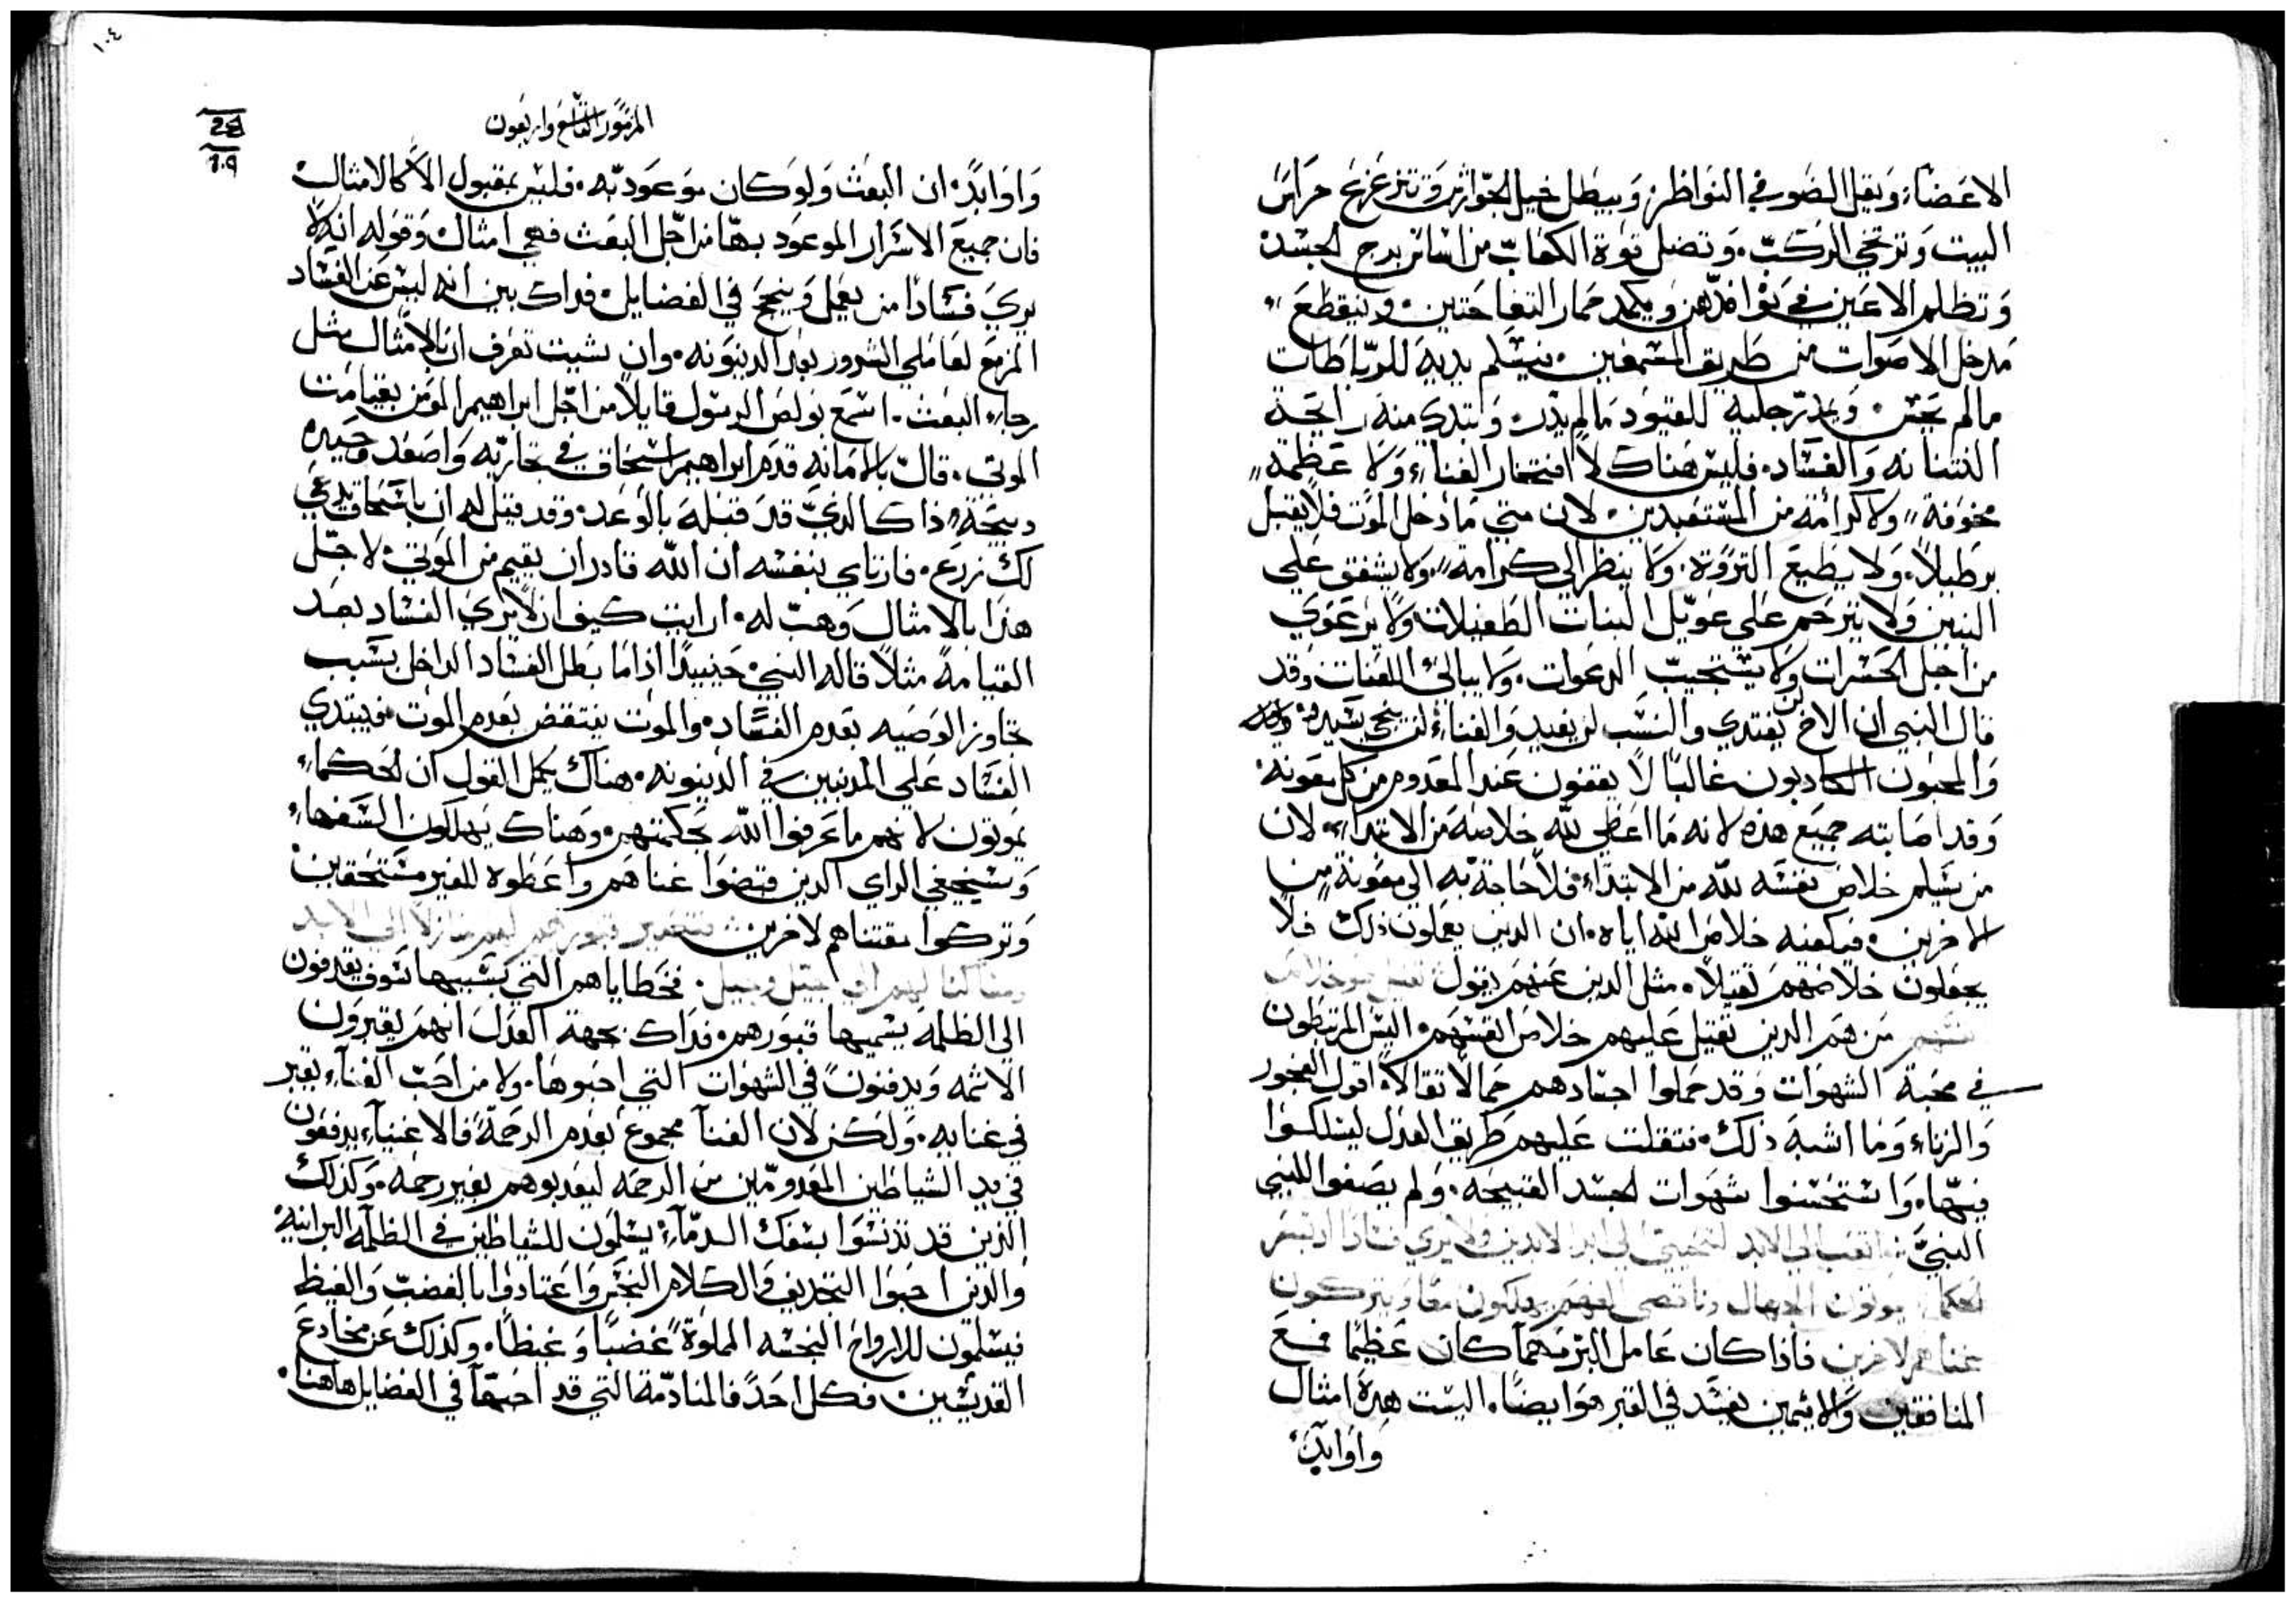 الاعضاء، ويقل الضو في النواظر، ويبطل خيل الجوازين وتتزعزع حراس
البيت وترتخي الركب، وتضل قوة الكعاب من اساس برج الجسد
وتظلم الاعين في نوافدهن ويكمد حمار التفاحتين، وينقطع
مدخل الاصوات من طريق المسمعين، فيسلم يديه للرباطات
مالم يحس، ويمد رجليه للقيود مالم يدر، وتبتدي منه رايحة
النتنانه والفساد، فليس هناك لا افتخار الغناء، ولا عظمة
مخوفة، ولا كرامة من المستعبدين، لان متي ما دخل الموت فلا يقبل
برطيلاً، ولا يطيع الثروة، ولا ينظر الي كرامة، ولا يشفق علي
البنين ولا يترحم علي عويل البنات الطفيلات ولا يرعوي
من اجل الحسرات ولا يستجيب الدعوات، ولا يبالي اللغات، وقد
قال النبي ان الاخ لن يفتدي والنسب لن يفيد والغناء لن ينجي سيده،
والمحبون الكادبون غالباً لا يقفون عند المعدوم من كل معونة،
وقد اصابته جميع هذه لانه ما اعطي لله خلاصه من الابتداء، لان
من يسلم خلاص نفسه لله من الابتداء، فلا حاجة به الي معونة من
الاخرين، فيكفيه خلاص الله اياه، ان الدين يعملون ذلك فلا
يجعلون خلاصهم ثقيلاً، مثل الدين عنهم يقول ثقيل هو خلاص
نفسهم من هم الدين ثقيل عليهم خلاص انفسهم، اليس المرتبطون
في محبة الشهوات وقد حملوا اجسادهم حمالا ثقالا، اقول الفجور
والزناء وما اشبه ذلك، فثقلت عليهم طريق العدل ليسلكوا
فيها، واستحسنوا شهوات الجسد القبيحه، ولم يصغوا للنبي
النبي تعب الي الابد لتحيي الي ابد الابدين ولا يري فسادا اذ تبصر
الحكماء يموتون الجهال وناقصي الفهم يهلكون معاً ويتركون
غناهم لاخرين فاذا كان عامل البر مهما كان عظيماً فمع
المنافقين والاثمين يفسد في القبر هو ايضاً، اليست هذه امثال
واوابد،
١٠٤
المزمور التاسع واربعون
24
١٠٩
واوابد، ان البعث ولو كان موعود به، فليس بمقبول الا كالامثال
فان جميع الاسرار الموعود بها من اجل البعث فهي امثال، وقوله انه لا
يري فساداً من يعمل وينجح في الفضايل، فداك بين انه ليس عن الفساد
المزمع لعاملي الشرور بعد الدينونه، وان شيت تعرف ان بالامثال مثل
رجاء البعث، اسمع بولص الرسول قايلاً من اجل ابراهيم المومن بقيامت
الموتي، قال بالامانه قدم ابراهيم اسحاق في تجاربه واصعد وحيده
دبيحة، ذاك الذي قد قبله بالوعد، وقد قيل له ان باسحاق يدعي
لك زرع، فارتاي بنفسه ان الله قادر ان يقيم من الموتي، لاجل
هذا بالامثال وهب له، ارايت كيف ان لا يري الفساد بعد
القيامة مثلاً قاله النبي، حينيداً اذا ما بطل الفساد الداخل بسبب
تجاوز الوصيه بعدم الفساد، والموت ينتقض بعدم الموت، فيبتدي
الفساد علي المدنبين في الدينونه، هناك يكمل القول ان الحكماء
يموتون لانهم ما عرفوا الله بحكمتهم، وهناك يهلكون السفهاء
وسخيفي الراي الدين قبضوا غناهم واعطوه للغير مستحقين
وتركوا مقتناهم لاخرين فتصير قبورهم لهم منازلاً الي الابد
ومساكناً لهم الي جيل وجيل، فخطاياهم التي بسببها سوف يقدفون
الي الظلمة يسميها قبورهم، فداك بجهة العدل انهم يقبرون
الاثمه ويدفنون في الشهوات التي احبوها، ولا من احب الغناء يقبر
في غنايه، ولكن لان الغنا مجموع بعدم الرحمة، فالاغنياء يدفعون
في يد الشياطين المعدومين من الرحمه ليعدبوهم بغير رحمه، وكذلك
الذين قد تدنسوا بسفك الدماء، يسلمون للشياطين في الظلمة البرانية
والدين احبوا التجديف والكلام النجس واعتادوا بالغضب والغيظ
فيسلمون للارواح النجسه المملوة غضباً وغيظاً، وكذلك عن مخادع
القديسين، فكل احد فالمنادمة التي قد احبها في الفضايل هاهنا،